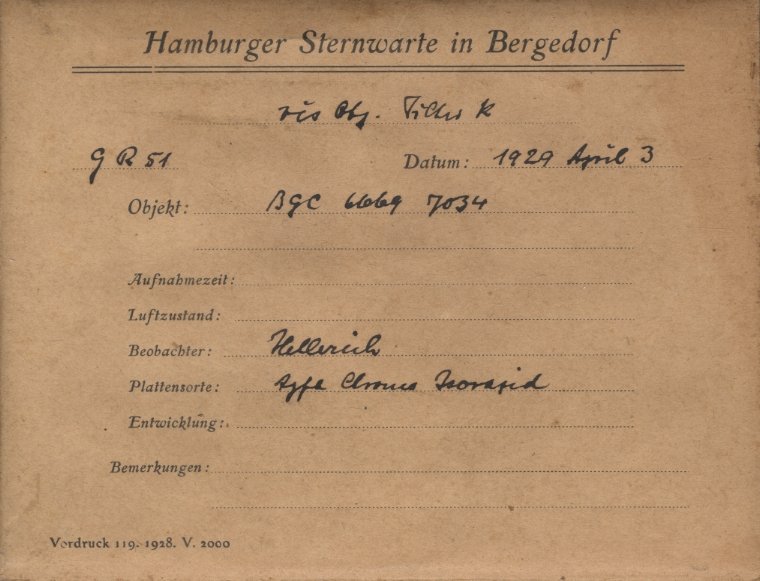 Hamburger Sternwarte in Bergedorf
vis Obj. Filter K
G R 51 Datum: 1929 April 3
Objekt: BGC 6669 7034
Aufnahmezeit:
Luftzustand:
Beobachter: Hellerich
Plattensorte: Agfa Chromo Isorapid
Entwicklung:
Bemerkungen:
Vordruck 119. 1928. V. 2000